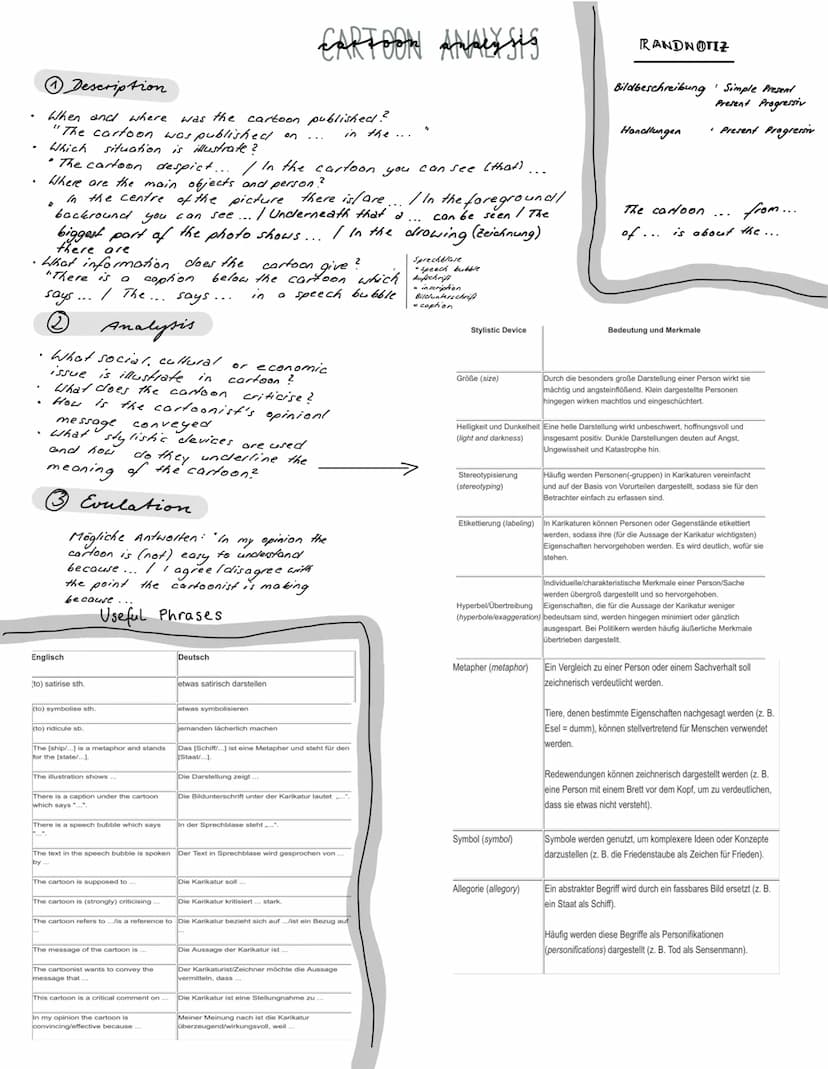 CARTOON ANALYSIS
cartoon analysis
RANDNOTIZ
Bildbeschreibung : Simple Present
Present Progressiv
Handlungen : Present Progressiv
The cartoon ... from...
of ... is about the ...
① Description
• When and where was the cartoon published?
"The cartoon was published on ... in the ... "
• Which situation is illustrate?
" The cartoon despict... / In the cartoon you can see (that) ...
• Where are the main objects and person?
" In the centre of the picture there is/are ... / In the foreground/
backround you can see ... / Underneath that a ... can be seen / The
biggest part of the photo shows ... / In the drawing (Zeichnung)
there are
• What information does the cartoon give?
"There is a caption below the cartoon which
says ... / The ... says ... in a speech bubble
Sprechblase
= speech bubble
Aufschrift
= inscription
Bildunterschrift
= caption
② Analysis
• What social, cultural or economic
issue is illustrate in cartoon?
• What does the cartoon criticise?
• How is the cartoonist's opinion/
message conveyed
• What stylistic devices are used
and how do they underline the
meaning of the cartoon?
③ Evulation
Mögliche Antworten: "In my opinion the
cartoon is (not) easy to understand
because ... / I agree/disagree with
the point the cartoonist is making
because ...
Useful Phrases
Englisch Deutsch
(to) satirise sth. etwas satirisch darstellen
(to) symbolise sth. etwas symbolisieren
(to) ridicule sb. jemanden lächerlich machen
The [ship/...] is a metaphor and stands Das [Schiff/...] ist eine Metapher und steht für den
for the [state/...]. [Staat/...].
The illustration shows ... Die Darstellung zeigt ...
There is a caption under the cartoon Die Bildunterschrift unter der Karikatur lautet „...".
which says "...".
There is a speech bubble which says In der Sprechblase steht „...".
"...".
The text in the speech bubble is spoken Der Text in Sprechblase wird gesprochen von ...
by ...
The cartoon is supposed to ... Die Karikatur soll ...
The cartoon is (strongly) criticising ... Die Karikatur kritisiert ... stark.
The cartoon refers to .../is a reference to Die Karikatur bezieht sich auf .../ist ein Bezug auf
... ...
The message of the cartoon is ... Die Aussage der Karikatur ist ...
The cartoonist wants to convey the Der Karikaturist/Zeichner möchte die Aussage
message that ... vermitteln, dass ...
This cartoon is a critical comment on ... Die Karikatur ist eine Stellungnahme zu ...
In my opinion the cartoon is Meiner Meinung nach ist die Karikatur
convincing/effective because ... überzeugend/wirkungsvoll, weil ...
Stylistic Device Bedeutung und Merkmale
Größe (size) Durch die besonders große Darstellung einer Person wirkt sie
mächtig und angsteinflößend. Klein dargestellte Personen
hingegen wirken machtlos und eingeschüchtert.
Helligkeit und Dunkelheit Eine helle Darstellung wirkt unbeschwert, hoffnungsvoll und
(light and darkness) insgesamt positiv. Dunkle Darstellungen deuten auf Angst,
Ungewissheit und Katastrophe hin.
Stereotypisierung Häufig werden Personen(-gruppen) in Karikaturen vereinfacht
(stereotyping) und auf der Basis von Vorurteilen dargestellt, sodass sie für den
Betrachter einfach zu erfassen sind.
Etikettierung (labeling) In Karikaturen können Personen oder Gegenstände etikettiert
werden, sodass ihre (für die Aussage der Karikatur wichtigsten)
Eigenschaften hervorgehoben werden. Es wird deutlich, wofür sie
stehen.
Individuelle/charakteristische Merkmale einer Person/Sache
werden übergroß dargestellt und so hervorgehoben.
Hyperbel/Übertreibung Eigenschaften, die für die Aussage der Karikatur weniger
(hyperbole/exaggeration) bedeutsam sind, werden hingegen minimiert oder gänzlich
ausgespart. Bei Politikern werden häufig äußerliche Merkmale
übertrieben dargestellt.
Metapher (metaphor) Ein Vergleich zu einer Person oder einem Sachverhalt soll
zeichnerisch verdeutlicht werden.
Tiere, denen bestimmte Eigenschaften nachgesagt werden (z. B.
Esel = dumm), können stellvertretend für Menschen verwendet
werden.
Redewendungen können zeichnerisch dargestellt werden (z. B.
eine Person mit einem Brett vor dem Kopf, um zu verdeutlichen,
dass sie etwas nicht versteht).
Symbol (symbol) Symbole werden genutzt, um komplexere Ideen oder Konzepte
darzustellen (z. B. die Friedenstaube als Zeichen für Frieden).
Allegorie (allegory) Ein abstrakter Begriff wird durch ein fassbares Bild ersetzt (z. B.
ein Staat als Schiff).
Häufig werden diese Begriffe als Personifikationen
(personifications) dargestellt (z. B. Tod als Sensenmann).